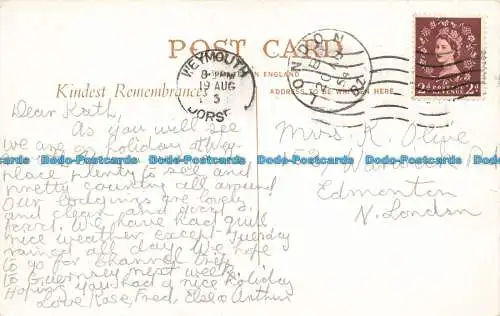 POST CARD
IN ENGLAND
Kindest Remembrances
ADDRESS TO BE WRITTEN HERE
WEYMOUTH
8- PM
19 AUG
DORSET
LONDON
2d POSTAGE REVENUE 2d
Dear Kath,
As you will see
we are on holiday at Wey-
place plenty to see and
pretty country all around
Our lodgings are lovely
and clean and good
food. We have had quite
nice weather except Tuesday
rained all day. We hope
to go for Channel trip
to Guernsey next week.
Hoping you had a nice holiday
Love Rose, Fred, Elsie & Arthur
Mrs. K. Olive
52
Edmonton
N. London
Dodo-Postcards Dodo-Postcards Dodo-Postcards Dodo-Postcards Dodo-Postcards